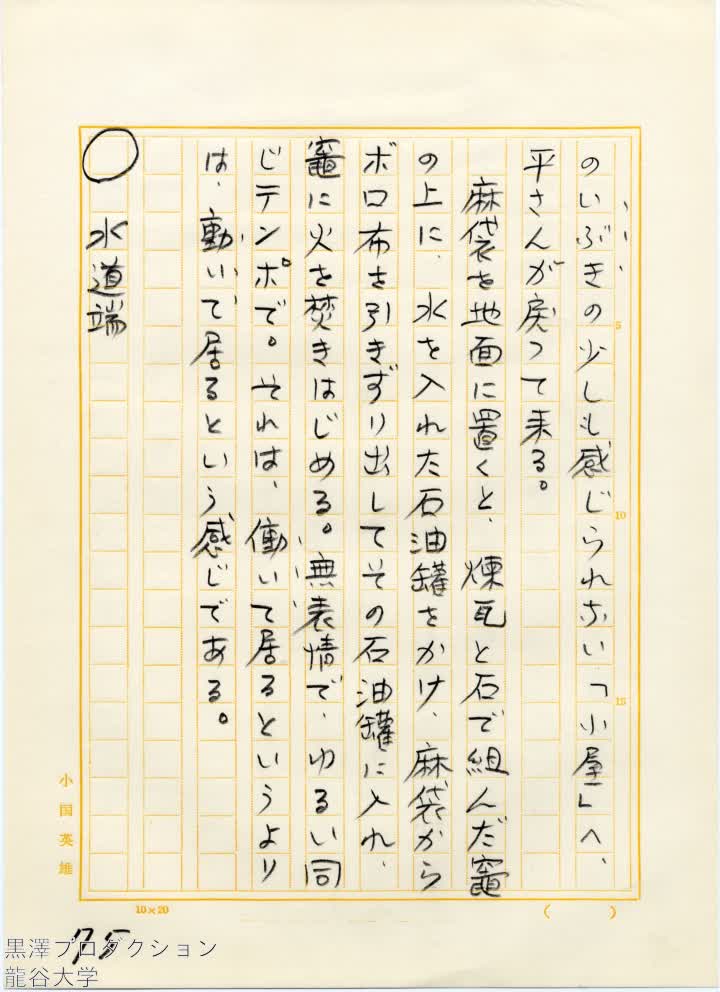 のいぶきの少しも感じられない「小屋」へ、
平さんが戻って来る。
麻袋を地面に置くと、煉瓦と石で組んだ竈
の上に、水を入れた石油罐をかけ、麻袋から
ボロ布を引きずり出してその石油罐に入れ、
竈に火を焚きはじめる。無表情で、ゆるい同
じテンポで。それは、働いて居るというより
は、動いて居るという感じである。
○ 水道端
小国英雄
5
10
15
10×20
( )
75
黒澤プロダクション
龍谷大学